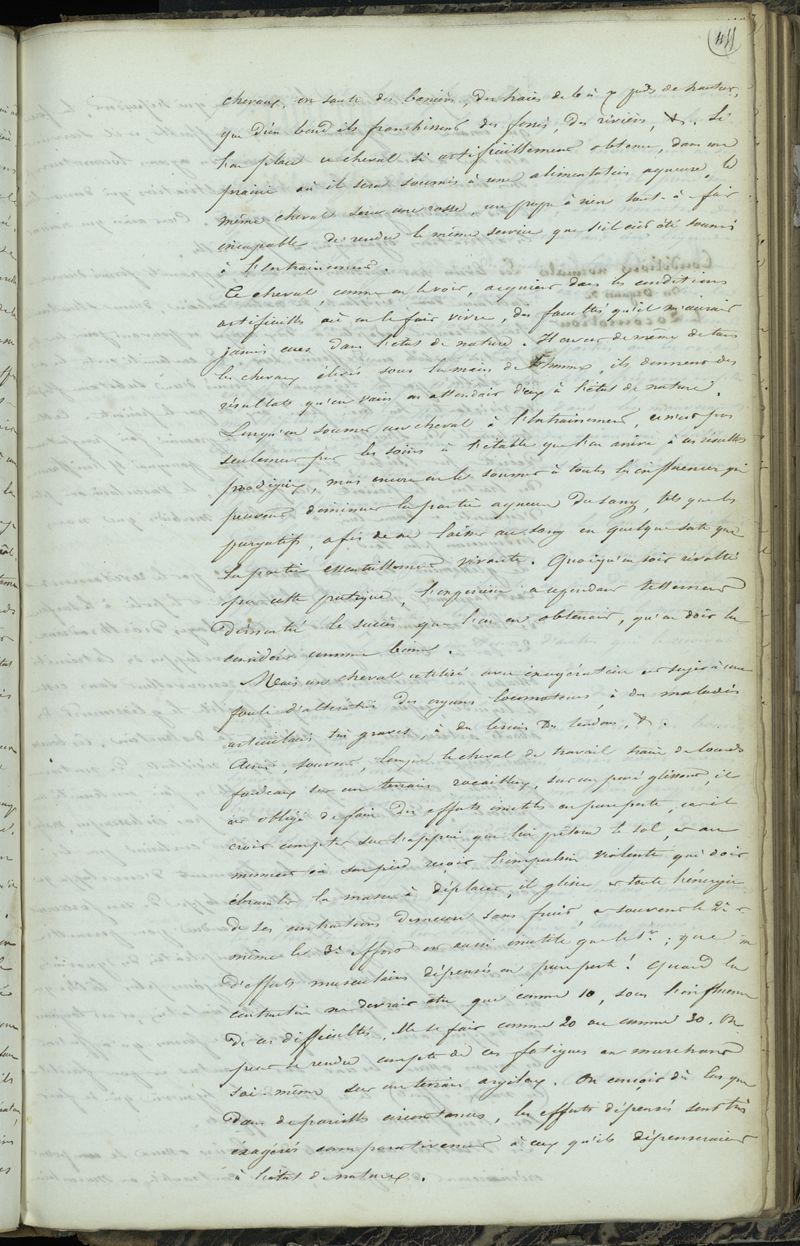 411
chevaux, on saute des barrières, des haies de 6 à 7 pieds de hauteur,
que d'un bond ils franchissent des fossés, des rivières, &. Si
l'on place ce cheval si artificiellement obtenu, dans une
prairie où il sera soumis à une alimentation aqueuse, le
même cheval sera une rosse, un propre à rien tout-à-fait
incapable de rendre le même service que s'il eut été soumis
à l'entrainement.
Ce cheval comme on le voit, acquiert dans les conditions
artificielles où on le fait vivre, des facultés qu'il n'aurait
jamais eues dans l'état de nature. Il en est de même de tous
les chevaux élevés sous la main de l'homme, ils donnent des
résultats qu'en vain on attendait d'eux à l'état de nature.
Lorsqu'on soumet un cheval à l'entrainement, ce n'est pas
seulement par les soins à l'étable que l'on arrive à ces résultats
prodigieux, mais encore on le soumet à toutes les influences qui
peuvent diminuer la partie aqueuse du sang, tels que les
purgatifs, afin de ne laisser au sang en quelque sorte que
la partie essentiellement vivante. Quoiqu'on soit révolté
par cette pratique, l'expérience a cependant tellement
démontré le succès que l'on en obtenait, qu'on doit la
considérer comme bonne.
Mais un cheval utilisé avec exagération est sujet à une
foule d'altérations des organes locomoteurs, à des maladies
articulaires très graves, à des lésions des tendons, &.
Ainsi, souvent, lorsque le cheval de travail traîne de lourds
fardeaux sur un terrain rocailleux, sur un pavé glissant, il
est obligé de faire des efforts inutiles en pure perte, car il
croit compter sur l'appui que lui présente le sol, et au
moment où son pied reçoit l'impulsion violente qui doit
ébranler la masse à déplacer, il glisse et toute l'énergie
de ses contractions demeure sans fruit, et souvent le 2e et
même le 3e effort est aussi inutile que le 1er; que
d'efforts musculaires dépensés en pure perte! Quand la
contraction ne devrait être que comme 10, sous l'influence
de ces difficultés, elle se fait comme 20 ou comme 30. On
peut se rendre compte de ces fatigues en marchant
soi-même sur un terrain argileux. On conçoit dès lors que
dans de pareilles circonstances, les efforts dépensés sont très
exagérés comparativement à ceux qu'ils dépenseraient
à l'état de nature.